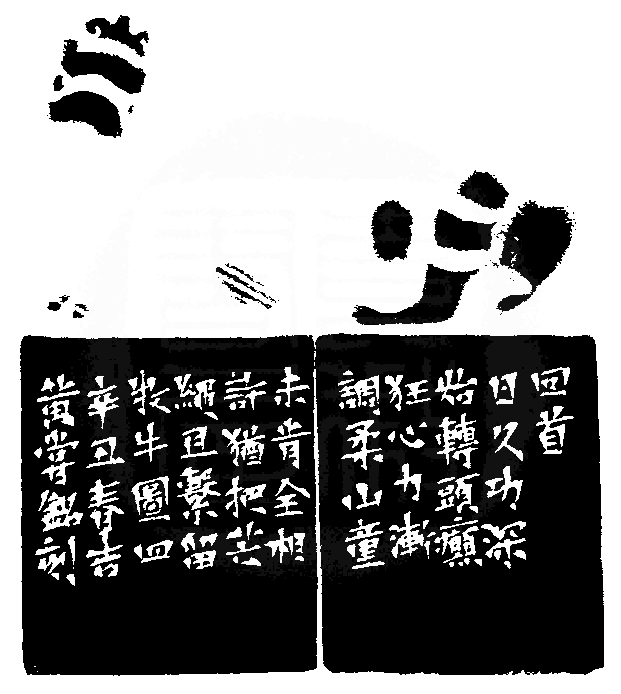 回首
日久功深
始轉頭癲
狂心力漸
調柔山童
未肯全相
許猶把芒
繩且繫留
牧牛圖四
辛丑春吉
黃嘗銘刻